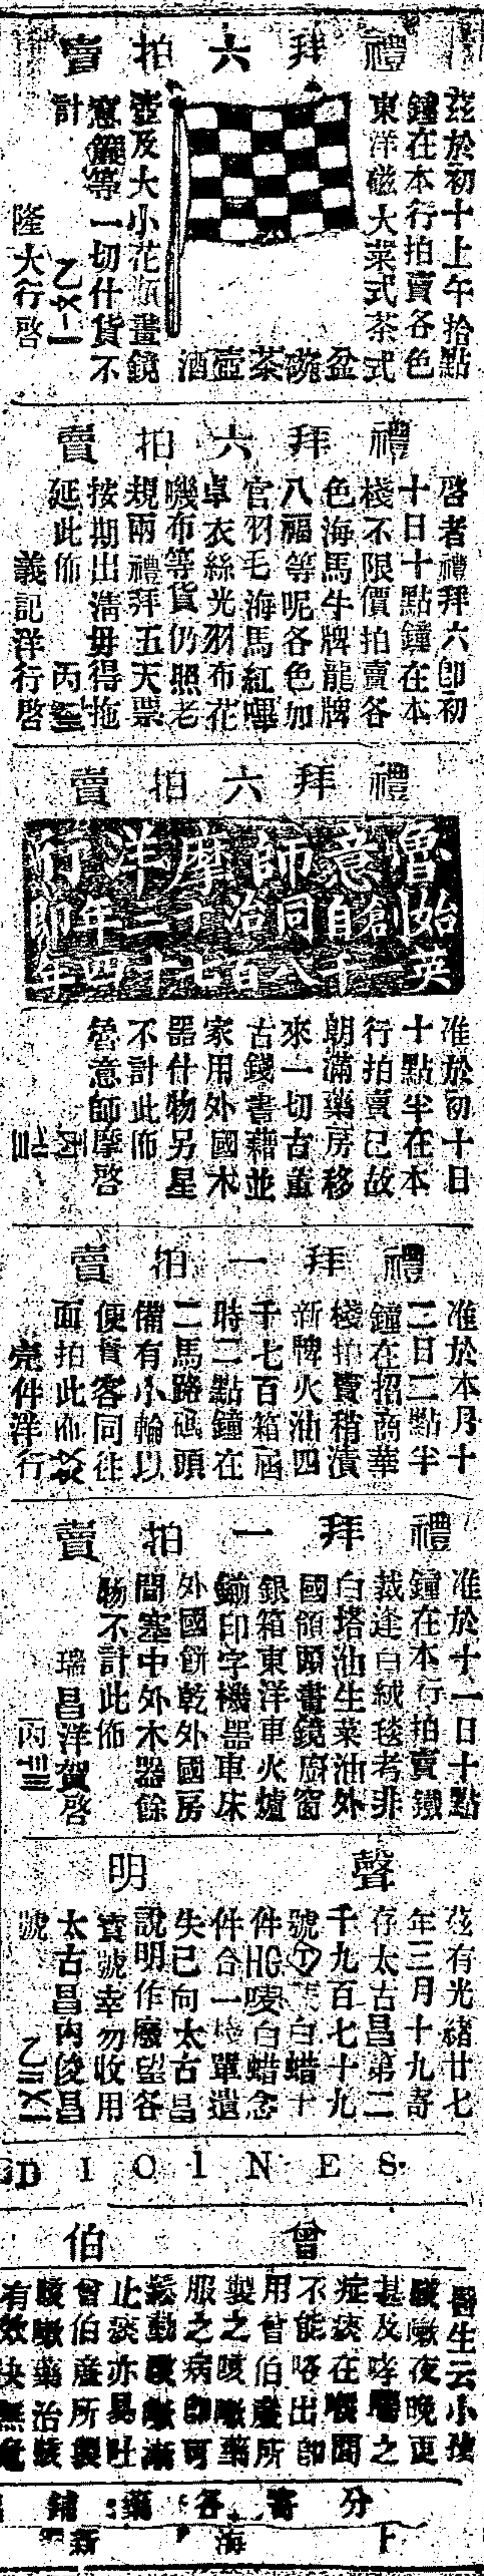 禮拜六拍賣
茲於初十上午拾點
鐘在本行拍賣各色
東洋磁大菜式茶式
盆碗茶壺酒
壺及大小花瓶畫鏡
等一切什貨不
計
隆大行啓
禮拜六拍賣
啓者禮拜六卽初
十日十點鐘在本
棧不限價拍賣各
色海馬牛牌龍牌
八福等呢各色加
官羽毛海馬紅嗶
卓衣絲光羽布花
嘰布等貨仍照老
規兩禮拜五天票
按期出淸毋得拖
延此佈
義記洋行啓
禮拜六拍賣
魯意師摩洋行
始創自同治十二年卽
英千八百七十四年
准於初十日
十點半在本
行拍賣已故
朝滿藥房移
來一切古董
古錢書籍並
家用外國木
器什物另星
不計此佈
魯意師摩啓
禮拜一拍賣
准於本月十
二日二點半
鐘在招商華
棧拍賣稍漬
新牌火油四
千七百箱屆
時二點鐘在
二馬路碼頭
備有小輪以
便賓客同往
面拍此佈
壳件洋行
禮拜一拍賣
准於十一日十點
鐘在本行拍賣鐵
裁逢白絨毯考非
白塔油生菜油外
國領頭畫鏡廚窗
銀箱東洋車火爐
鋤印字機器車床
外國餅乾外國房
間塞中外木器餘
物不計此佈
瑞昌洋賀啓
聲明
茲有光緒廿七
年三月十九寄
存太古昌第二
千九百七十九
號白蜡十
件HG嘜白蜡念
件合一棧單遺
失已向太古昌
說明作廢望各
寶號幸勿收用
太古昌內俊昌
號
SENIOID
曾伯
醫生云小孩
咳嗽夜晚更
甚及哮喘之
症痰在喉間
不能咯出卽
用曾伯蘆所
製之咳嗽藥
服之病卽可
鬆動咳嗽漸
止痰亦易吐
曾伯蘆所製
咳嗽藥治咳
有效快無
分寄各藥鋪
上海新